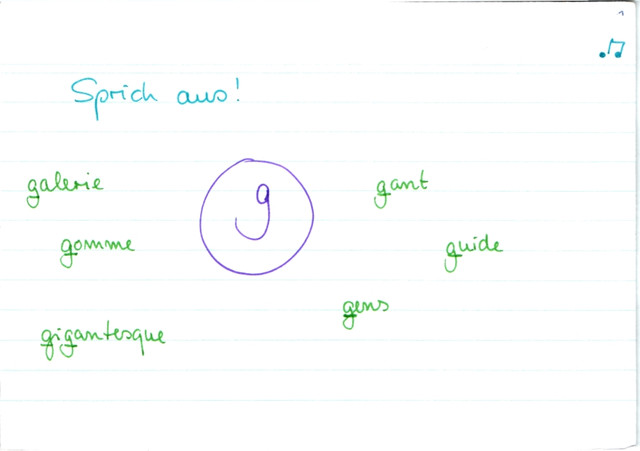 Sprich aus!
galerie
g
gant
gomme
guide
gens
gigantesque